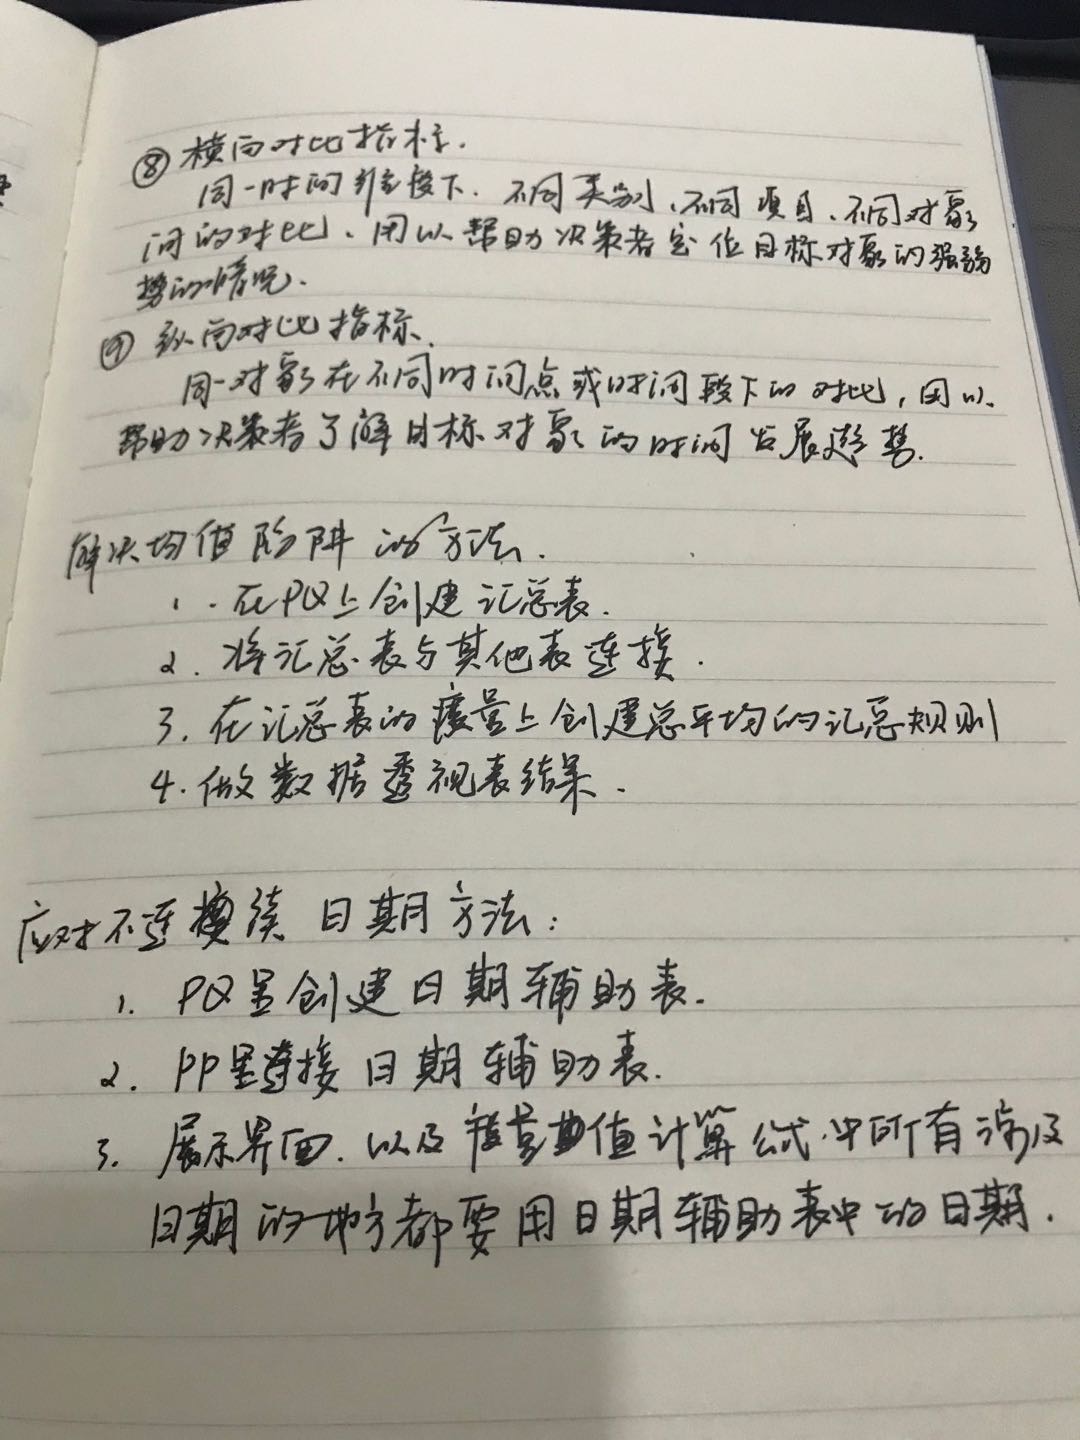 ⑧ 横向对比指标.
同一时间段下.不同类别、不同项目、不同对象
间的对比、用以帮助决策者定位目标对象的强弱
势的情况.
⑨ 纵向对比指标.
同一对象在不同时间点或时间段下的对比,用以
帮助决策者了解目标对象的时间发展趋势.
解决均值陷阱的方法.
1.在PQ上创建汇总表.
2.将汇总表与其他表连接.
3.在汇总表的度量上创建总平均的汇总规则
4.做数据透视表结果.
应对不连续日期方法:
1. PQ里创建日期辅助表.
2. PP里连接日期辅助表.
3. 展示界面.以及 值计算公式中所有涉及
日期的地方都要用日期辅助表中的日期.